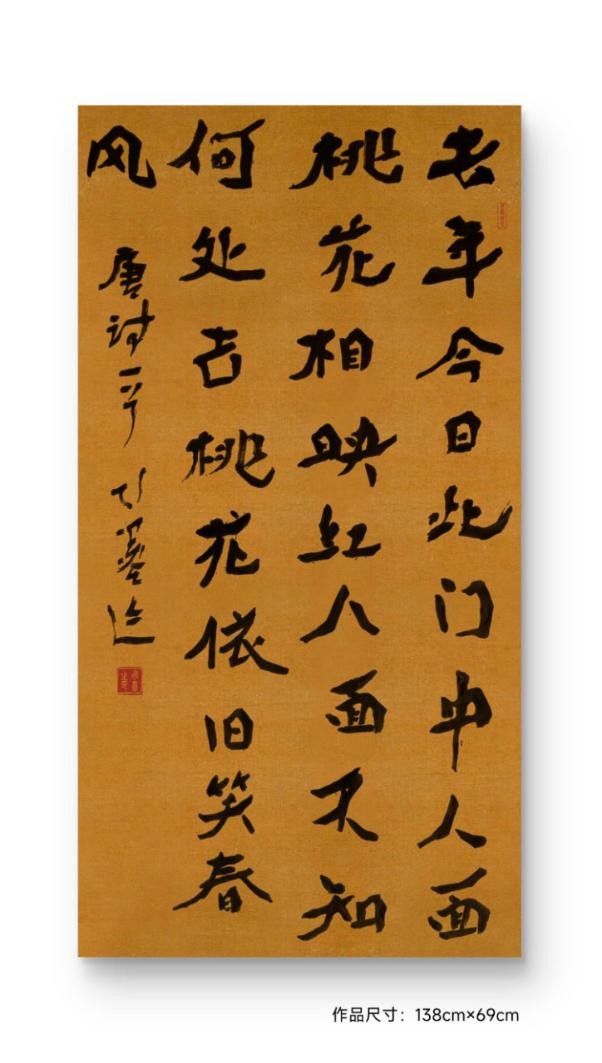 去年今日此门中人面
桃花相映红人面不知
何处去桃花依旧笑春
风 唐诗一首
作品尺寸：138cm×69cm